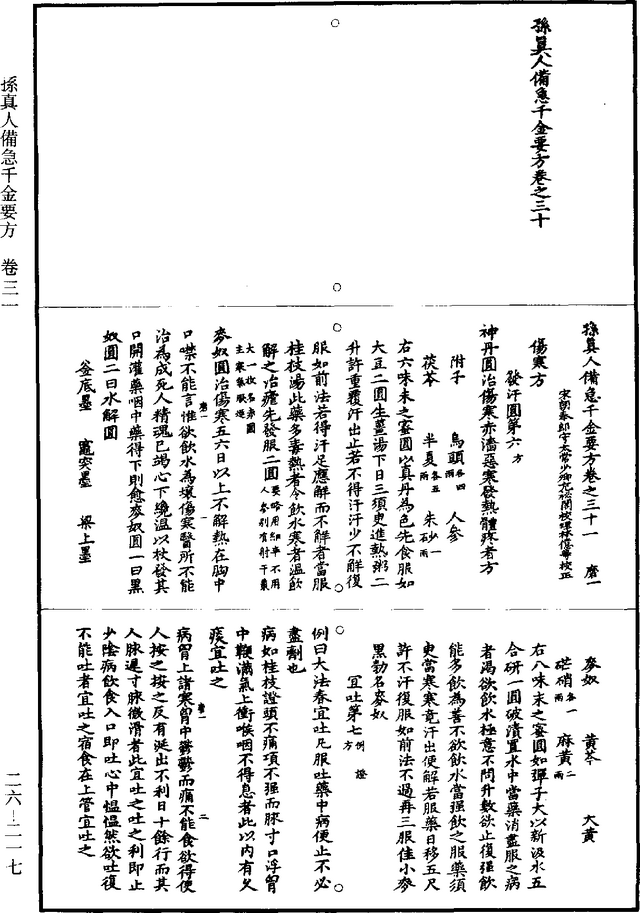 孫真人備急千金要方 卷三一
二六-二一一七
孫真人備急千金要方卷之三十
孫真人備急千金要方卷之三十一 磨一
宋朝奉郎守太常少卿充祕閣校理林億等校正
傷寒方
發汗圓第六 方
神丹圓治傷寒亦濇惡寒發熱體疼者方
附子 烏頭 各四兩 人參
茯苓 半夏 各五兩 朱砂 一兩
右六味末之蜜圓以真丹為色先食服如
大豆二圓生薑湯下日三須臾進熱粥二
升許重覆汗出止若不得汗汗少不解復
服如前法若得汗足應解而不解者當服
桂枝湯此藥多毒熱者令飲水寒者溫飲
解之治瘧先發服二圓 要略用細辛不用人參別有射干棗
大一枚名赤圓主寒氣厥逆
麥奴圓治傷寒五六日以上不解熱在胸中
口噤不能言惟欲飲水為壞傷寒醫所不能
治為成死人精魂已竭心下纔溫以杖發其
口開灌藥咽中藥得下則愈麥奴圓一曰黑
奴圓二曰水解圓
釜底墨 竈突墨 梁上墨
麥奴 黃芩 大黃
芒硝 各一兩 麻黃 二兩
右八味末之蜜圓如彈子大以新汲水五
合研一圓破漬置水中當藥消盡服之病
者渴欲飲水極意不問升數欲止復強飲
能多飲為善不欲飲水當強飲之服藥須
臾當寒寒竟汗出便解若服藥日移五尺
許不汗復服如前法不過再三服佳小麥
黑勃名麥奴
宜吐第七 例 證 方
例曰大法春宜吐凡服吐藥中病便止不必
盡劑也
病如桂枝證頭不痛項不強而脉寸口浮胷
中鞕滿氣上衝喉咽不得息者此以內有久
痰宜吐之
病胷上諸寒胷中鬱鬱而痛不能食欲得使
人按之按之反有涎出下利日十餘行而其
人脉遲寸脉微滑者此宜吐之吐之利即止
少陰病飲食入口即吐心中愠愠然欲吐復
不能吐者宜吐之宿食在上管宜吐之